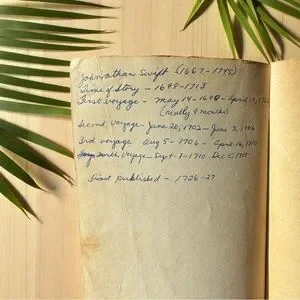 Johnathan Swift (1667-1745)
Time of Story - 1699-1713
First voyage - May 14-1698 - April 13, 1702
(really 9 months)
Second Voyage - June 20, 1702 - June 3, 1706
3rd voyage Aug 5 - 1706 - April 16, 1710
Voyage - Sept - 7 - 1710 Dec 5, 1715
First published - 1726-27